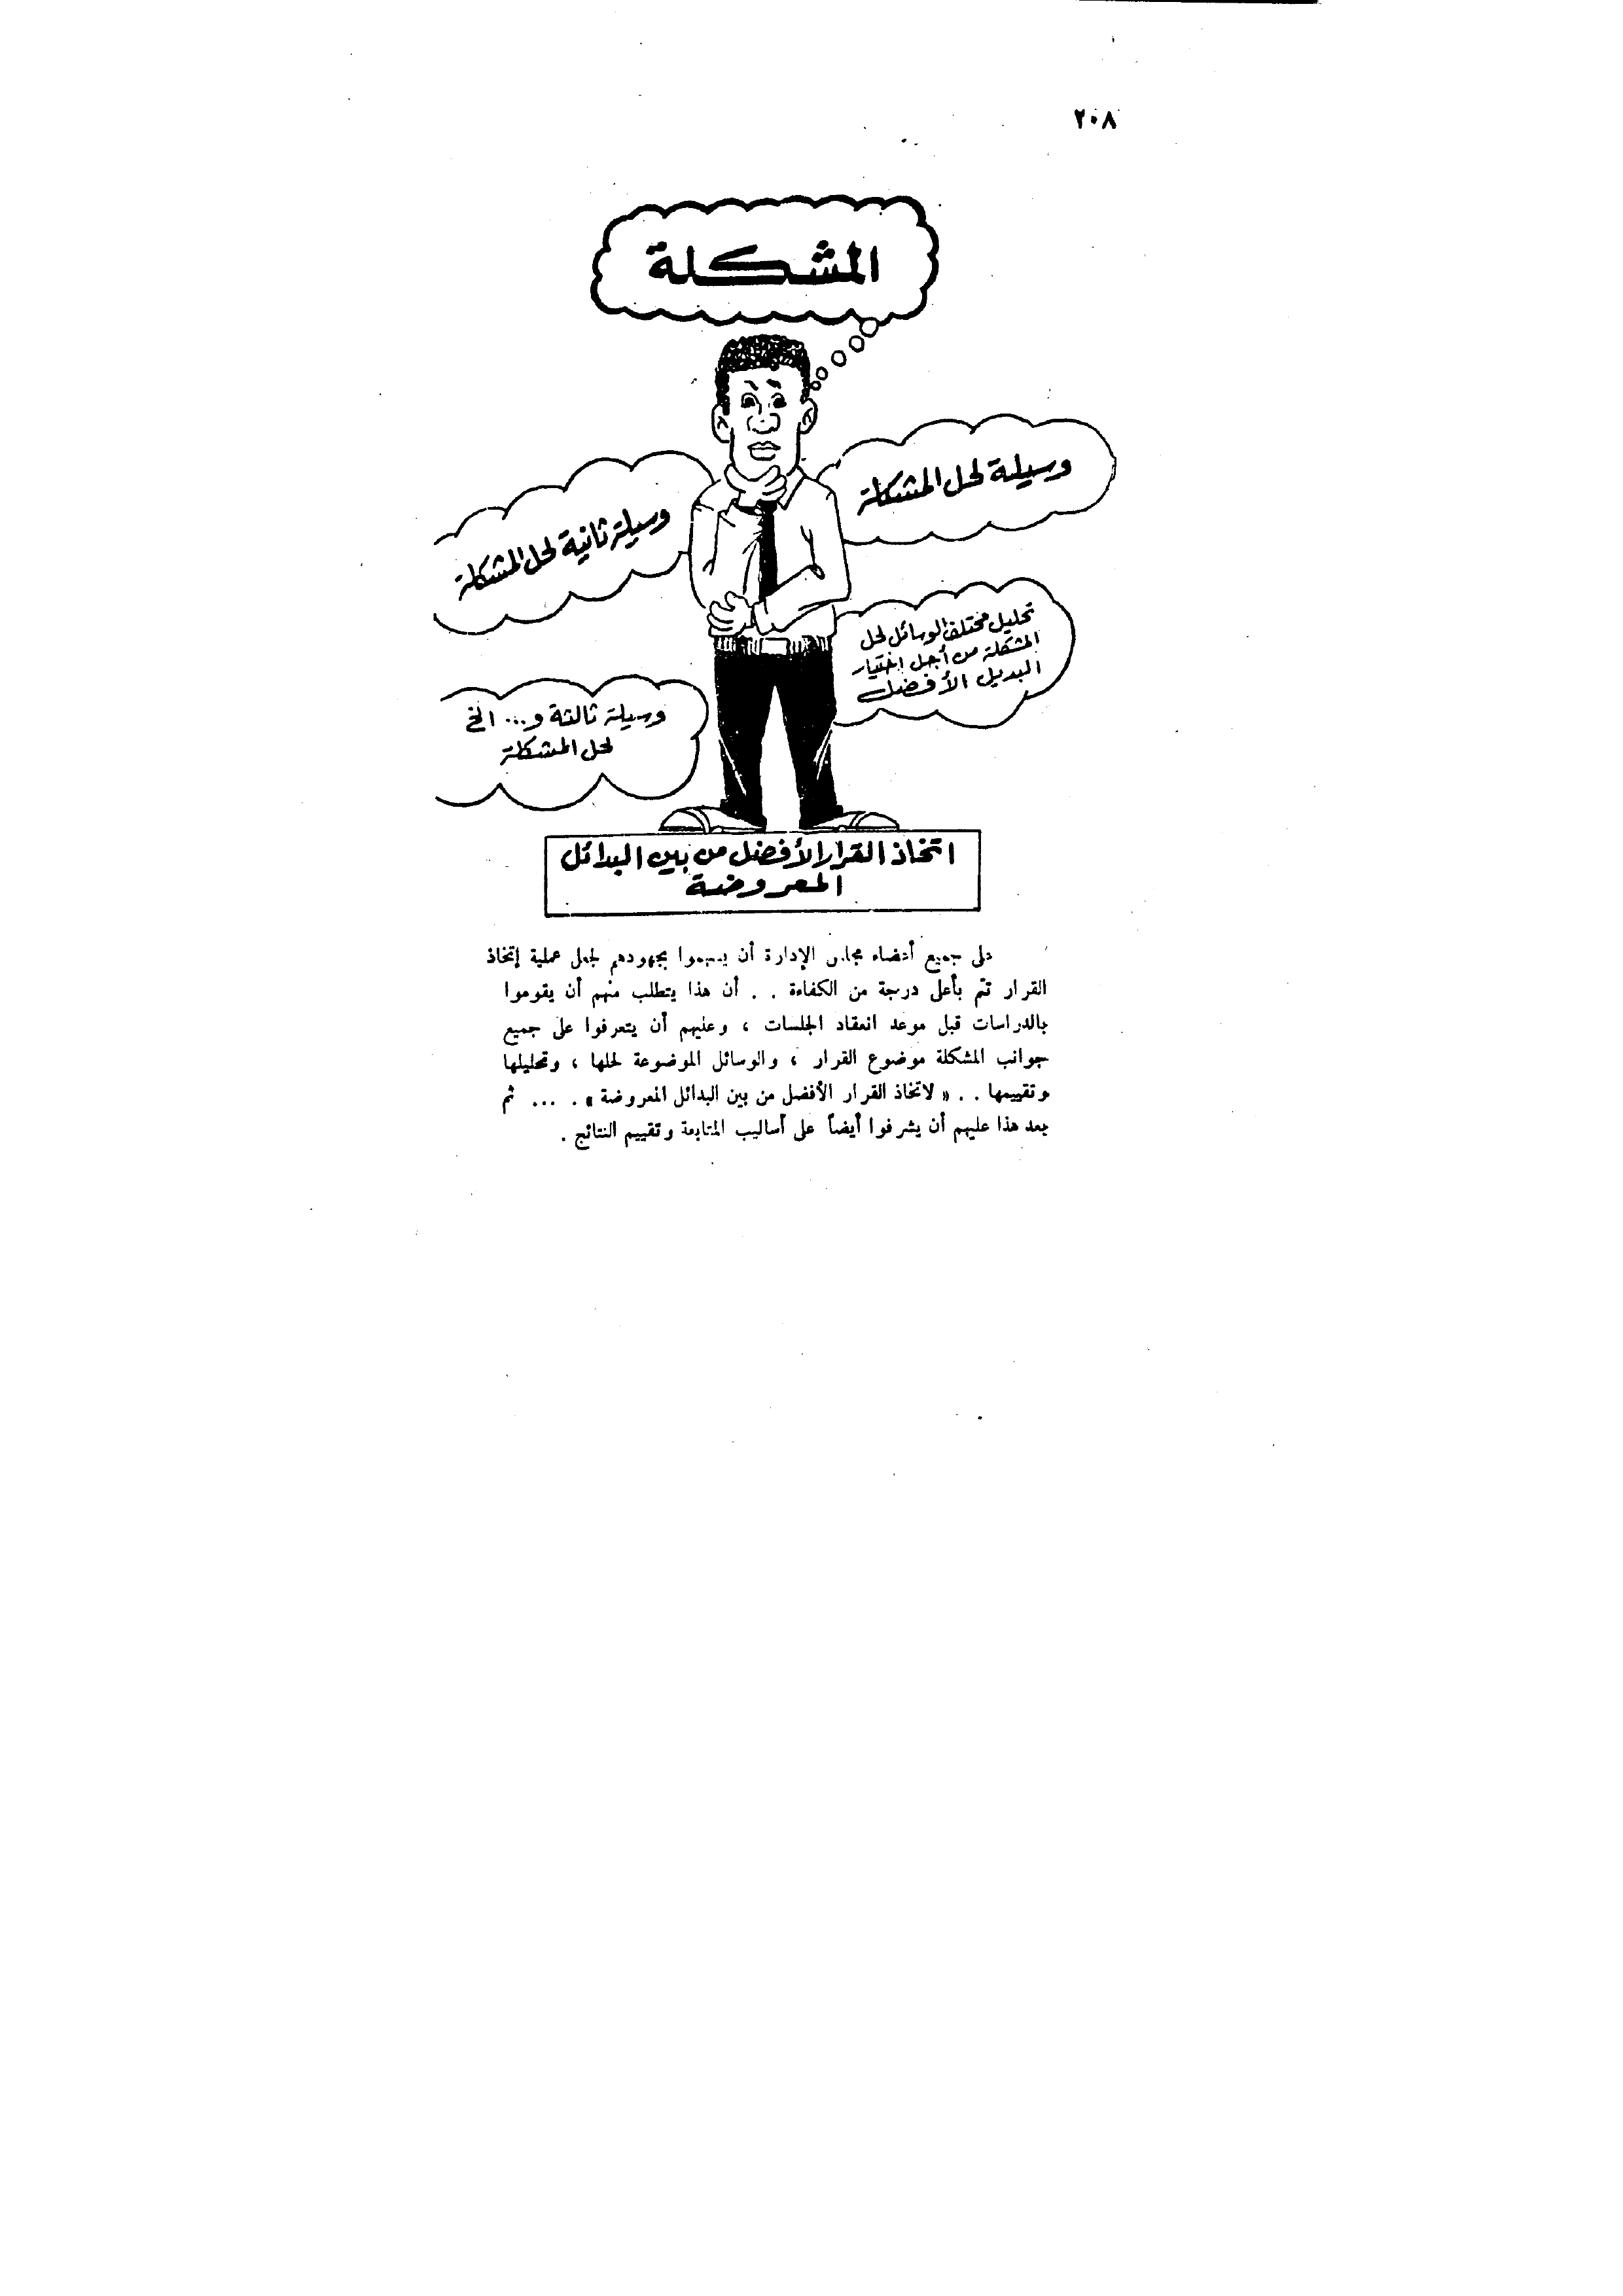 ٢٠٨
المشكلة
وسيلة لحل المشكلة
وسيلة ثانية لحل المشكلة
تحليل مختلف الوسائل لحل
المشكلة من أجل اختيار
البديل الأفضل
وسيلة ثالثة و... الخ
لحل المشكلة
اتخاذ القرار الأفضل من بين البدائل
المعروضة
على جميع أعضاء مجلس الإدارة أن يسهموا بجهودهم لجعل عملية إتخاذ
القرار تتم بأعلى درجة من الكفاءة . . أن هذا يتطلب منهم أن يقوموا
بالدراسات قبل موعد انعقاد الجلسات ، وعليهم أن يتعرفوا على جميع
جوانب المشكلة موضوع القرار ، والوسائل الموضوعة لحلها ، وتحليلها
وتقييمها . . « لاتخاذ القرار الأفضل من بين البدائل المعروضة » . ... ثم
بعد هذا عليهم أن يشرفوا أيضاً على أساليب المتابعة وتقييم النتائج .